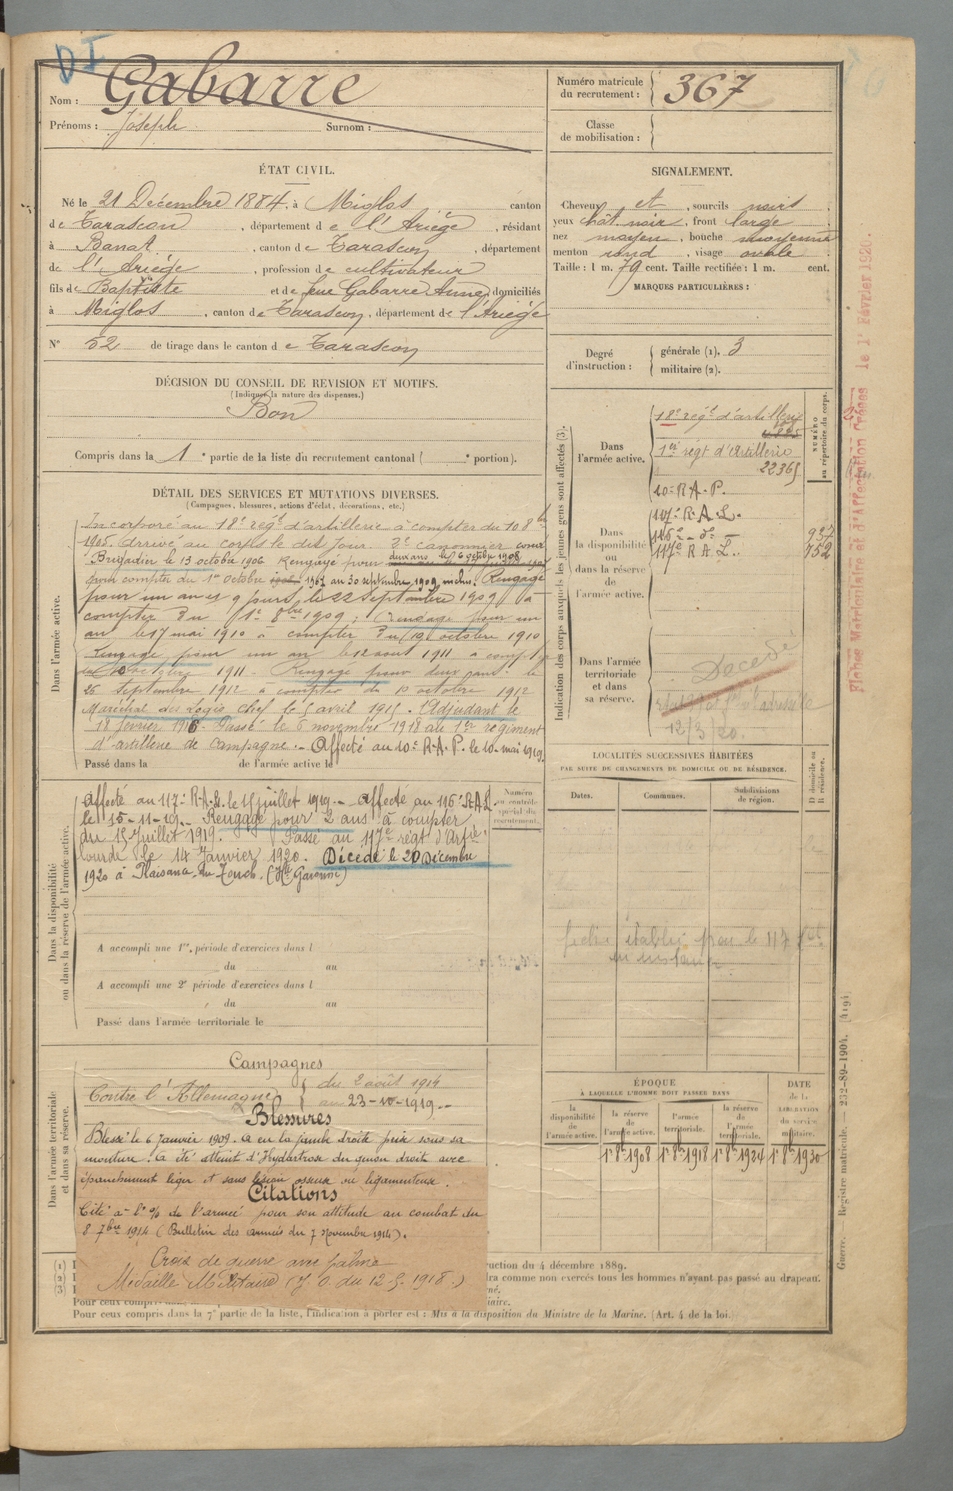 DI
Nom : Gabarre
Prénoms : Joseph Surnom :
Numéro matricule du recrutement : 367
Classe de mobilisation :
ÉTAT CIVIL.
Né le 21 Décembre 1884, à Miglos canton
de Tarascon, département de l'Ariège, résidant
à Banat, canton de Tarascon, département
de l'Ariège, profession de cultivateur
fils de Baptiste et de feue Gabarre Anne, domiciliés
à Miglos, canton de Tarascon, département de l'Ariège
N° 52 de tirage dans le canton de Tarascon
SIGNALEMENT.
Cheveux et, sourcils noirs
yeux chât noir, front large
nez moyen, bouche moyenne
menton rond, visage ovale
Taille : 1 m. 79 cent. Taille rectifiée : 1 m. cent.
MARQUES PARTICULIÈRES :
Degré d'instruction : générale (1). 3
militaire (2).
DÉCISION DU CONSEIL DE REVISION ET MOTIFS.
(Indiquer la nature des dispenses.)
Bon
Compris dans la 1e partie de la liste du recrutement cantonal ( e portion).
DÉTAIL DES SERVICES ET MUTATIONS DIVERSES.
(Campagnes, blessures, actions d'éclat, décorations, etc.)
Dans l'armée active.
Incorporé au 18e régt d'artillerie à compter du 10 8bre
1905. Arrivé au corps le dit jour. 2e canonnier
Brigadier le 13 octobre 1906. Rengagé pour deux ans le 6 octobre 1908
pour compter du 1er octobre 1907 au 30 septembre 1909 inclus. Rengagé
pour un an et 9 jours le 22 septembre 1909 à
compter du 1er 8bre 1909; rengagé pour un
an le 17 mai 1910 à compter du 10 octobre 1910
Rengagé pour un an le 12 aout 1911 à compter
du 10 octobre 1911. Rengagé pour deux ans le
26 septembre 1912 à compter du 10 octobre 1912
Maréchal des Logis chef le 5 avril 1915. Adjudant le
18 février 1916. Passé le 6 novembre 1918 au 1er régiment
d'artillerie de campagne. - Affecté au 10e R.A.P. le 10 mai 1919.
Passé dans la de l'armée active le
Dans la disponibilité ou dans la réserve de l'armée active.
Affecté au 117e R.A.L. le 15 juillet 1919. - Affecté au 116e R.A.L.
le 15-11-19. - Rengagé pour 2 ans à compter
du 15 juillet 1919. Passé au 117e régt d'Artie
lourde le 14 Janvier 1920. Décédé le 20 Décembre
1920 à Plaisance-du-Touch. (Hte Garonne)
Numéro au contrôle spécial du recrutement.
A accompli une 1re période d'exercices dans l
du au
A accompli une 2e période d'exercices dans l
du au
Passé dans l'armée territoriale le
Dans l'armée territoriale et dans sa réserve.
Campagnes
Contre l'Allemagne du 2 août 1914
au 23-10-1919.-
Blessures
Blessé le 6 janvier 1909. a eu la jambe droite prise sous sa
monture. a été atteint d'Hydartrose du genou droit avec
épanchement léger et sans lésion osseuse ou ligamenteuse.
Citations
Cité à l'o/o de l'armée pour son attitude au combat du
8 7bre 1914 (Bulletin des armées du 7 Novembre 1914).
Croix de guerre avec palme
Médaille Militaire (J.O. du 12.5.1918.)
Indication des corps auxquels les jeunes gens sont affectés (3).
NUMÉRO au répertoire du corps.
Dans l'armée active.
18e régt d'artillerie
1er régt d'Artillerie
22365
10e R.A.P.
Dans la disponibilité ou dans la réserve de l'armée active.
117e R.A.L.
116e - do - 937
117e R A L. 752
Dans l'armée territoriale et dans sa réserve.
Décédé
12/3/20.
LOCALITÉS SUCCESSIVES HABITÉES
PAR SUITE DE CHANGEMENTS DE DOMICILE OU DE RÉSIDENCE.
Dates. Communes. Subdivisions de région. D domicile ou R résidence.
ÉPOQUE
À LAQUELLE L'HOMME DOIT PASSER DANS
DATE de la LIBÉRATION du service militaire.
la disponibilité de l'armée active. la réserve de l'armée active. l'armée territoriale. la réserve de l'armée territoriale.
1er 8bre 1908 1er 8bre 1918 1er 8bre 1924 1er 8bre 1930
(1)
(2)
(3)
ruction du 4 décembre 1889.
dra comme non exercés tous les hommes n'ayant pas passé au drapeau.
Pour ceux compris dans la 7e partie de la liste, l'indication à porter est : Mis à la disposition du Ministre de la Marine. (Art. 4 de la loi.)
Fiches Matriculaire et d'Affectation Créées le 1r Février 1920.
Guerre. Registre matricule. — 232-89-1904. [419]